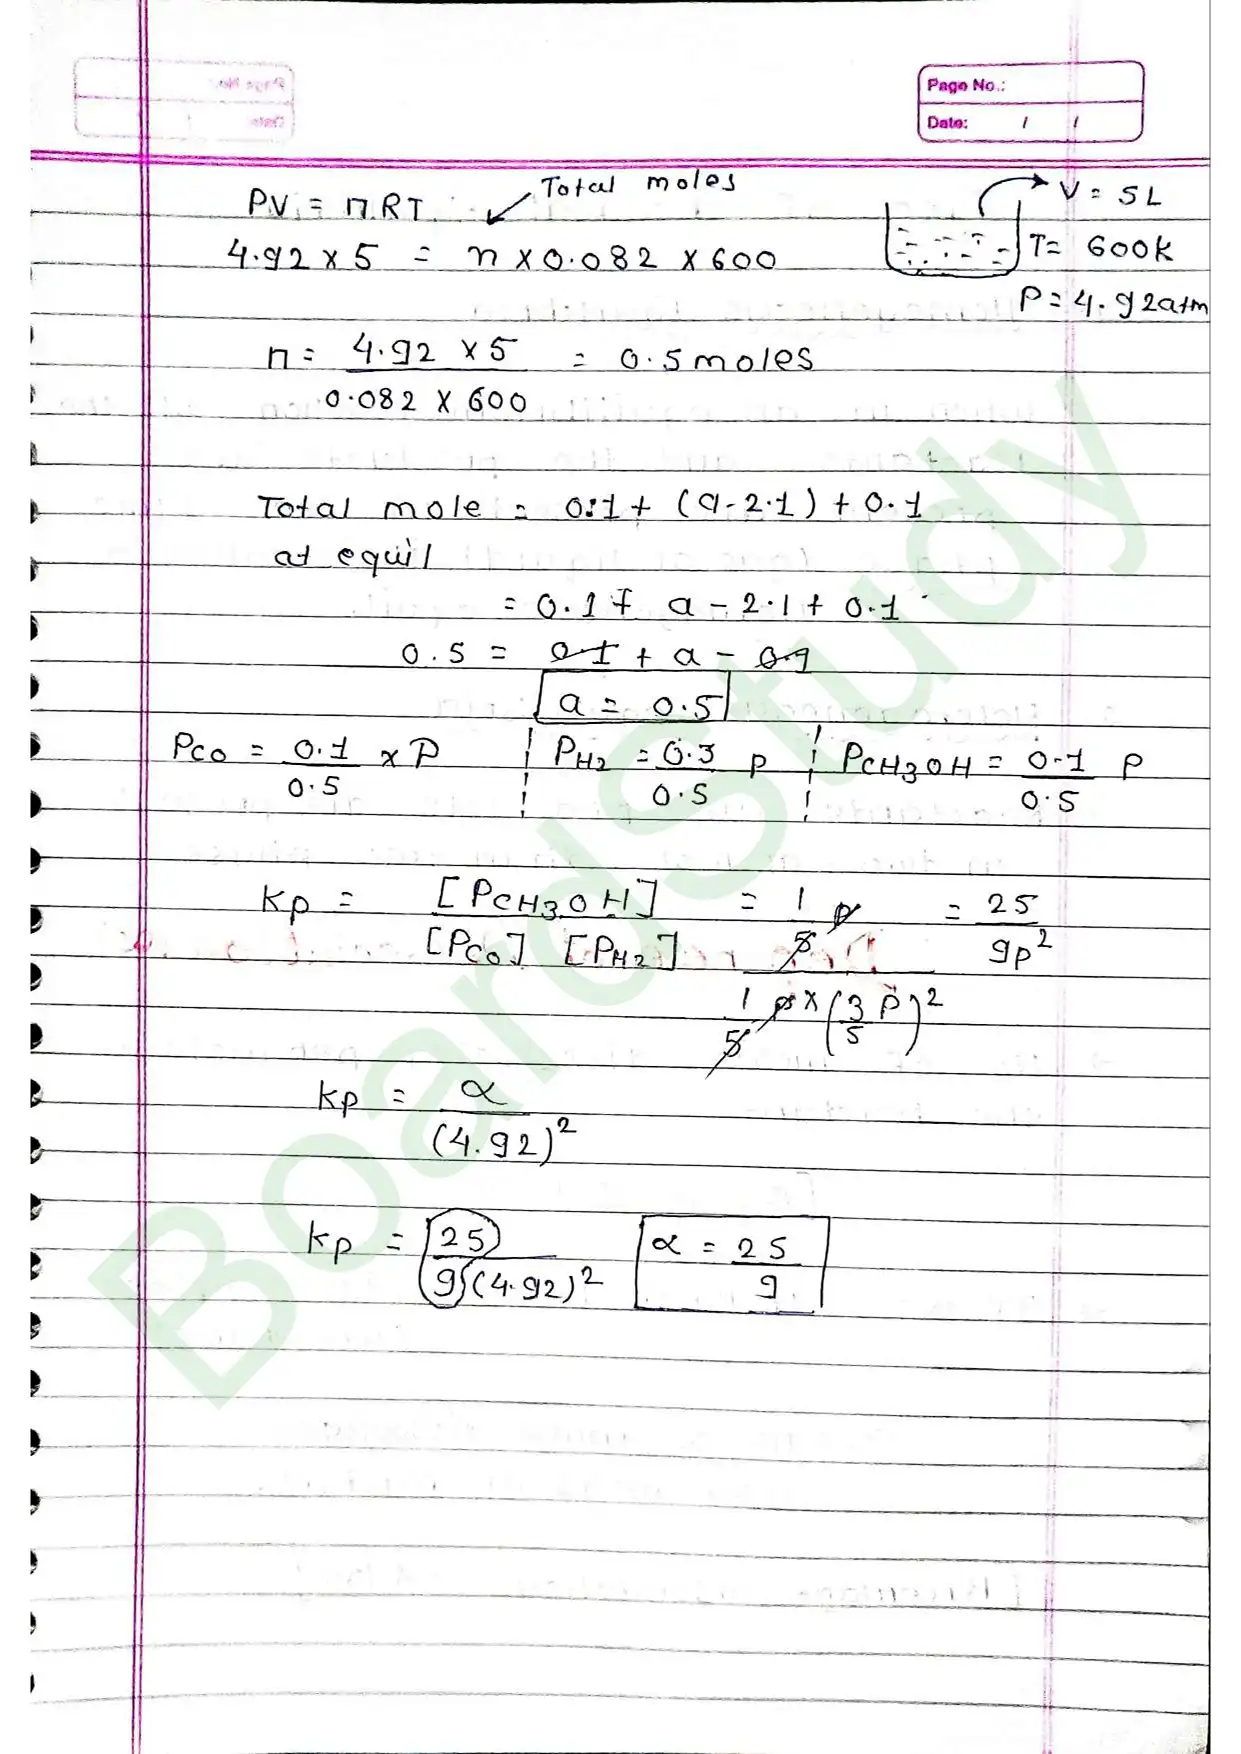 Page No.:
Date: / /
Total moles
PV = nRT
V = 5L
4.92 x 5 = n x 0.082 x 600
T = 600k
P = 4.92atm
n = 4.92 x 5 / 0.082 x 600 = 0.5 moles
Total mole = 0.1 + (a - 2.1) + 0.1
at equil
= 0.1 + a - 2.1 + 0.1
0.5 = 0.1 + a - 0.1
a = 0.5
PCO = 0.1 / 0.5 x P PH2 = 0.3 / 0.5 P PCH3OH = 0.1 / 0.5 P
Kp = [PCH3OH] / [PCO] [PH2] = 1/5 P / 1/5 P x (3/5 P)² = 25 / 9p²
Kp = α / (4.92)²
Kp = 25 / 9(4.92)² α = 25 / 9
BoardStudy